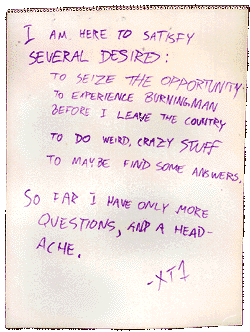 I AM HERE TO SATISFY
SEVERAL DESIRES:
TO SEIZE THE OPPORTUNITY
TO EXPERIENCE BURNINGMAN
BEFORE I LEAVE THE COUNTRY
TO DO WEIRD, CRAZY STUFF
TO MAYBE FIND SOME ANSWERS.
SO FAR I HAVE ONLY MORE
QUESTIONS, AND A HEAD-
ACHE.
-XT1